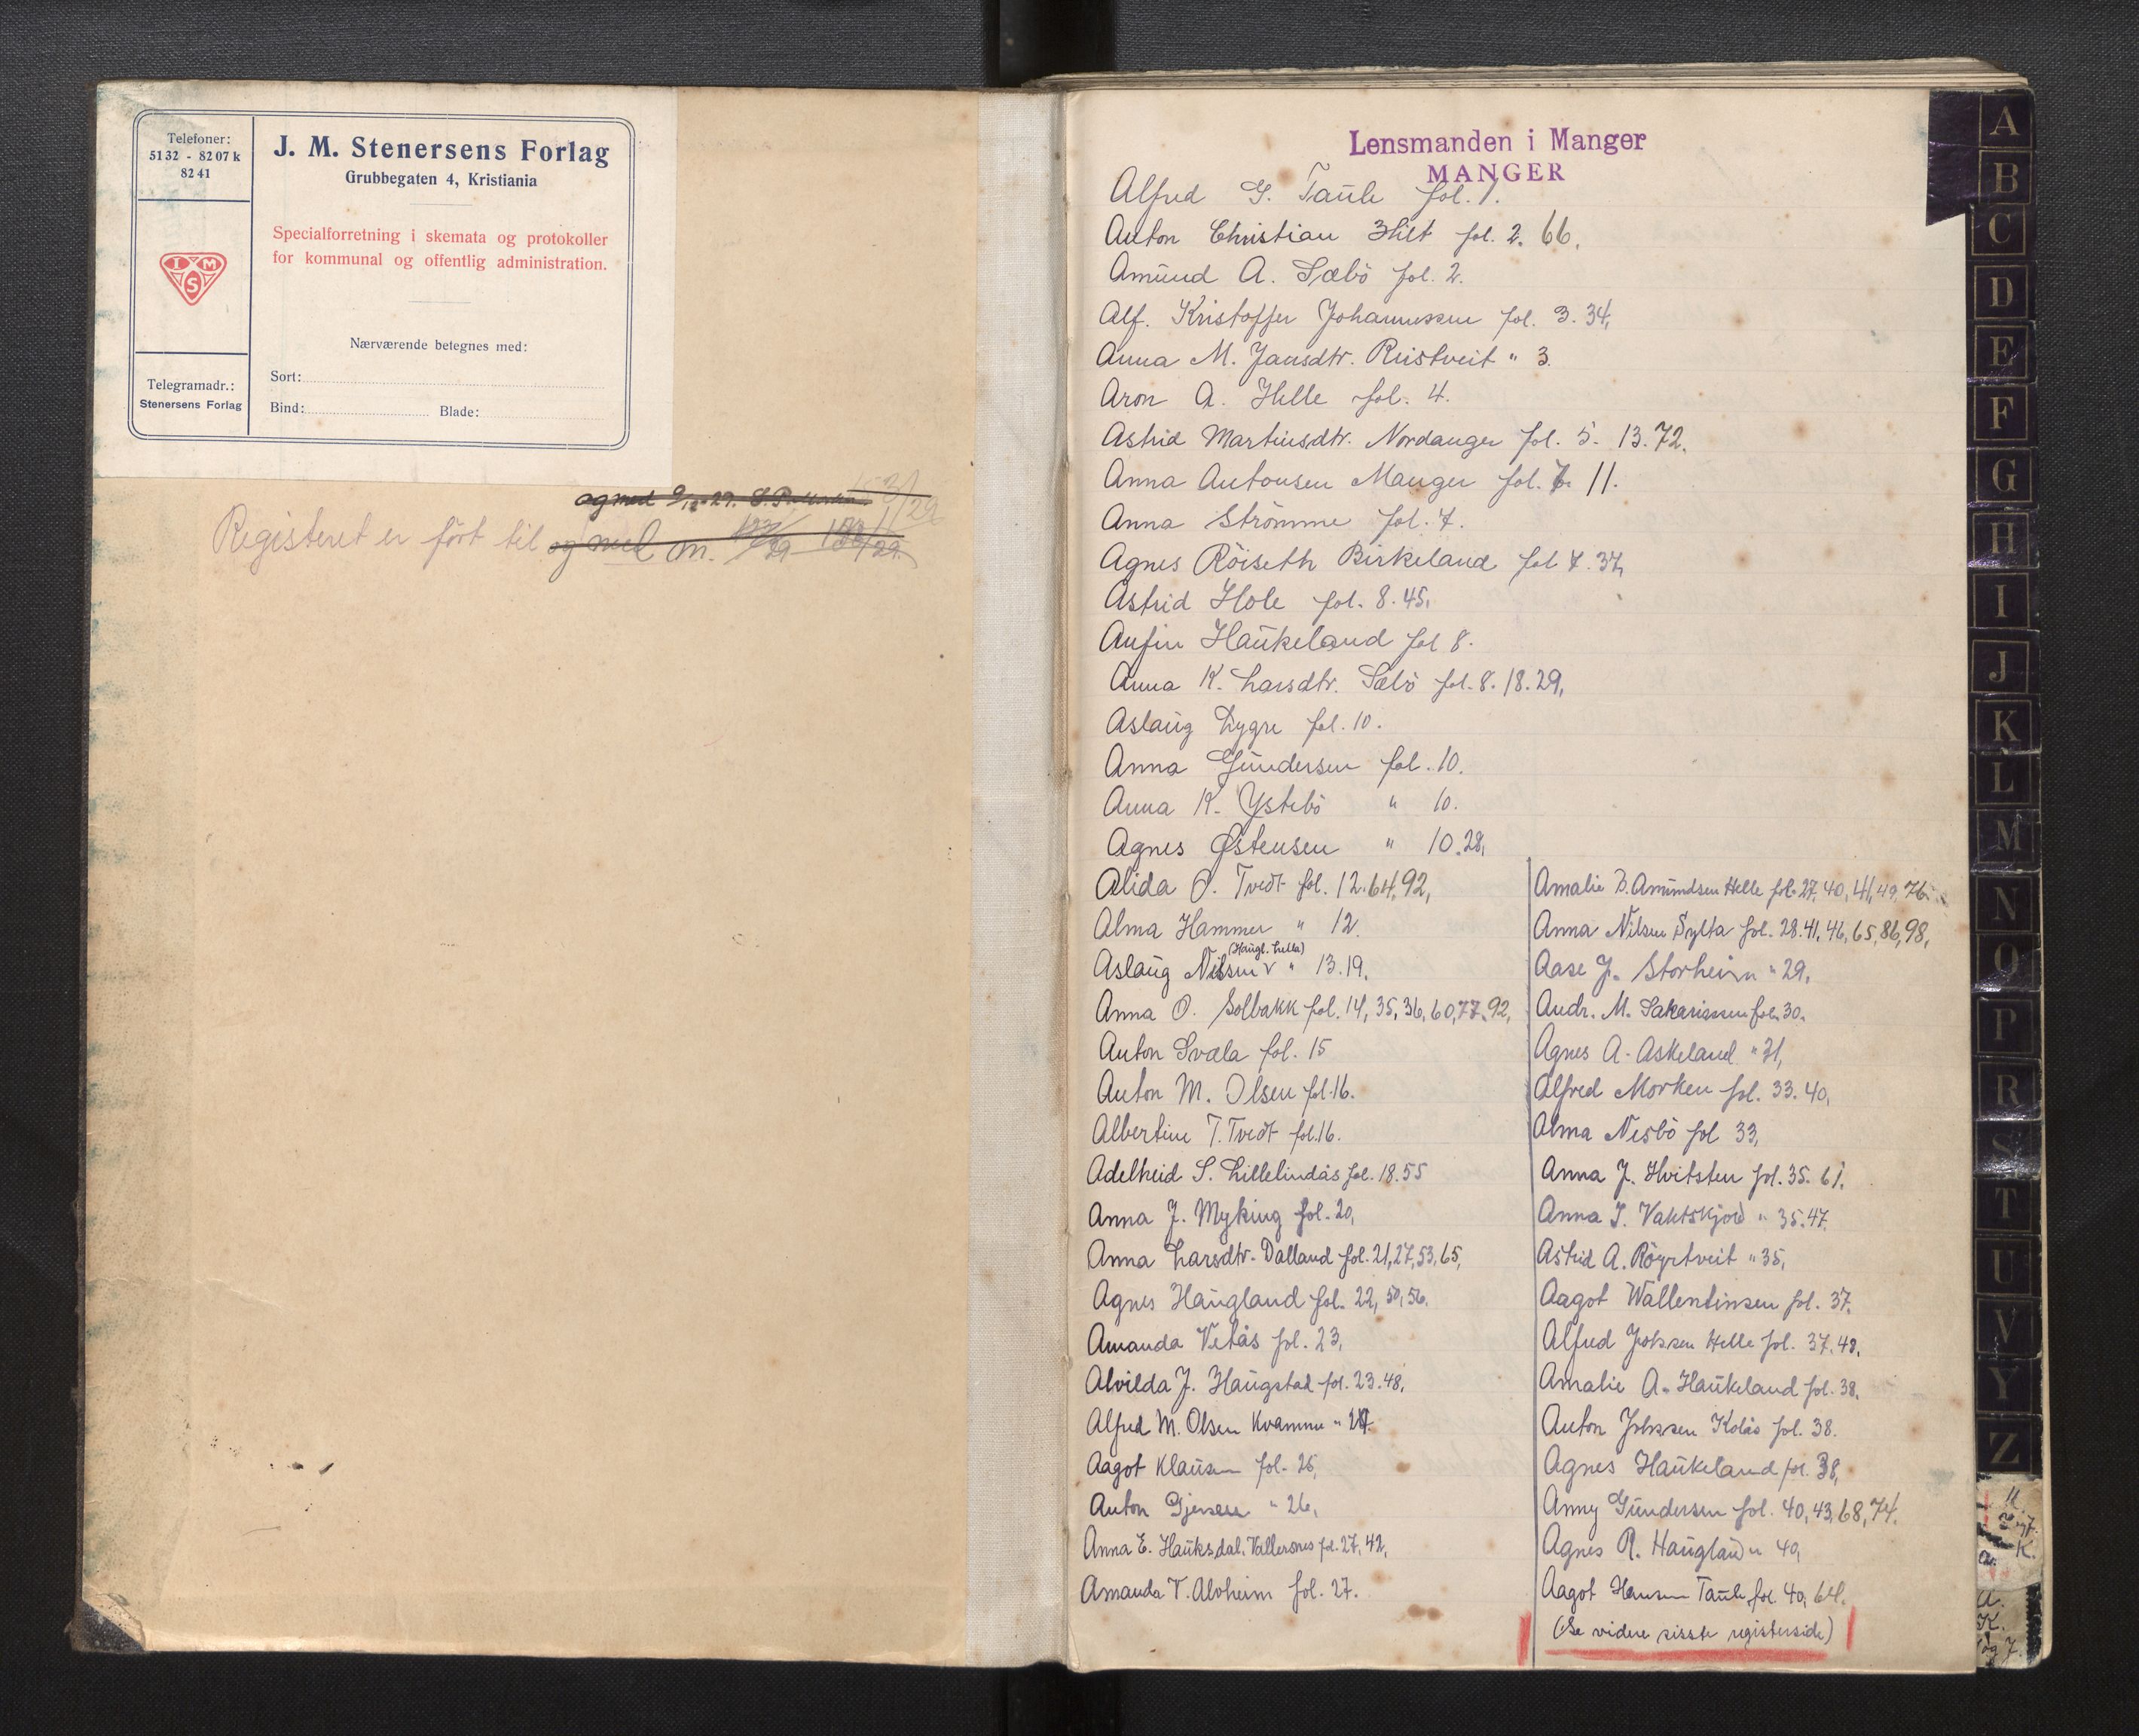 Telefoner:
5132 - 8207k
8241
J. M. Stenersens Forlag
Grubbegaten 4, Kristiania
Specialforretning i skemata og protokoller
for kommunal og offentlig administration.
I M S
Nærværende betegnes med:
Sort:
Bind: Blade:
Telegramadr.:
Stenersens Forlag
og med
Registeret er ført til og med m.
Lensmanden i Manger
MANGER
Alfred G. Taule fol. 1.
Anton Christian Hilt fol. 2. 66.
Amund A. Sæbö fol. 2.
Alf. Kristoffer Johannessen fol. 3. 34,
Anna M. Jansdtr. Ristveit " 3.
Aron A. Helle fol. 4.
Astrid Martinsdtr. Nordanger fol. 5. 13. 72.
Anna Antonsen Manger fol. 11.
Anna Strömme fol. 7.
Agnes Röiseth Birkeland fol 7. 37,
Astrid Hole fol. 8. 45,
Anfin Haukeland fol 8.
Anna K. Larsdtr. Sæbö fol. 8. 18. 29,
Aslaug Lygre fol. 10.
Anna Gundersen fol. 10.
Anna K. Ystebö " 10.
Agnes Østensen " 10. 28,
Alida O. Tvedt fol. 12. 64, 92,
Alma Hammer " 12.
(Haugl. Lella)
Aslaug Nilsen v " 13. 19.
Anna O. Solbakk fol. 14, 35, 36, 60, 77. 92,
Anton Svæla fol. 15
Anton M. Olsen fol. 16.
Albertine T. Tvedt fol. 16.
Adelheid S. Lillelindås fol. 18. 55
Anna J. Myking fol. 20,
Anna Larsdtr. Dalland fol. 21, 27, 53, 65,
Agnes Haugland fol. 22, 50, 56.
Amanda Vetås fol. 23,
Alvilda J. Haugstad fol. 23. 48,
Alfred M. Olsen Kvamme "
Aagot Klausen fol. 25,
Anton " 26,
Anna E. Hauksdal. Vallersnes fol. 27, 42,
Amanda T. Alvheim fol. 27.
Amalie B. Amundsen Helle fol. 27. 40, 41, 49, 76.
Anna Nilsen Sylta fol. 28. 41, 46, 65, 86, 98,
Aase J. Storheim " 29,
Andr. M. Sakariassen fol. 30.
Agnes A. Askeland " 31,
Alfred Morken fol. 33. 40,
Alma Nesbö fol 33,
Anna J. Hvitsten fol. 35. 61.
Anna I. Vaktskjold " 35. 47.
Astrid A. Röyrtveit " 35,
Aagot Wallentinsen fol. 37.
Alfred Johssen Helle fol. 37. 48.
Amalie A. Haukeland fol. 38.
Anton Johssen Kolås fol. 38.
Agnes Haukeland fol. 38,
Anny Gundersen fol. 40, 43, 68, 74.
Agnes R. Haugland " 40,
Aagot Hansen Taule fol. 40, 64.
(Se videre sisste registerside)
A
B
C
D
E
F
G
H
I
J
K
L
M
N
O
P
R
S
T
U
V
Y
Z